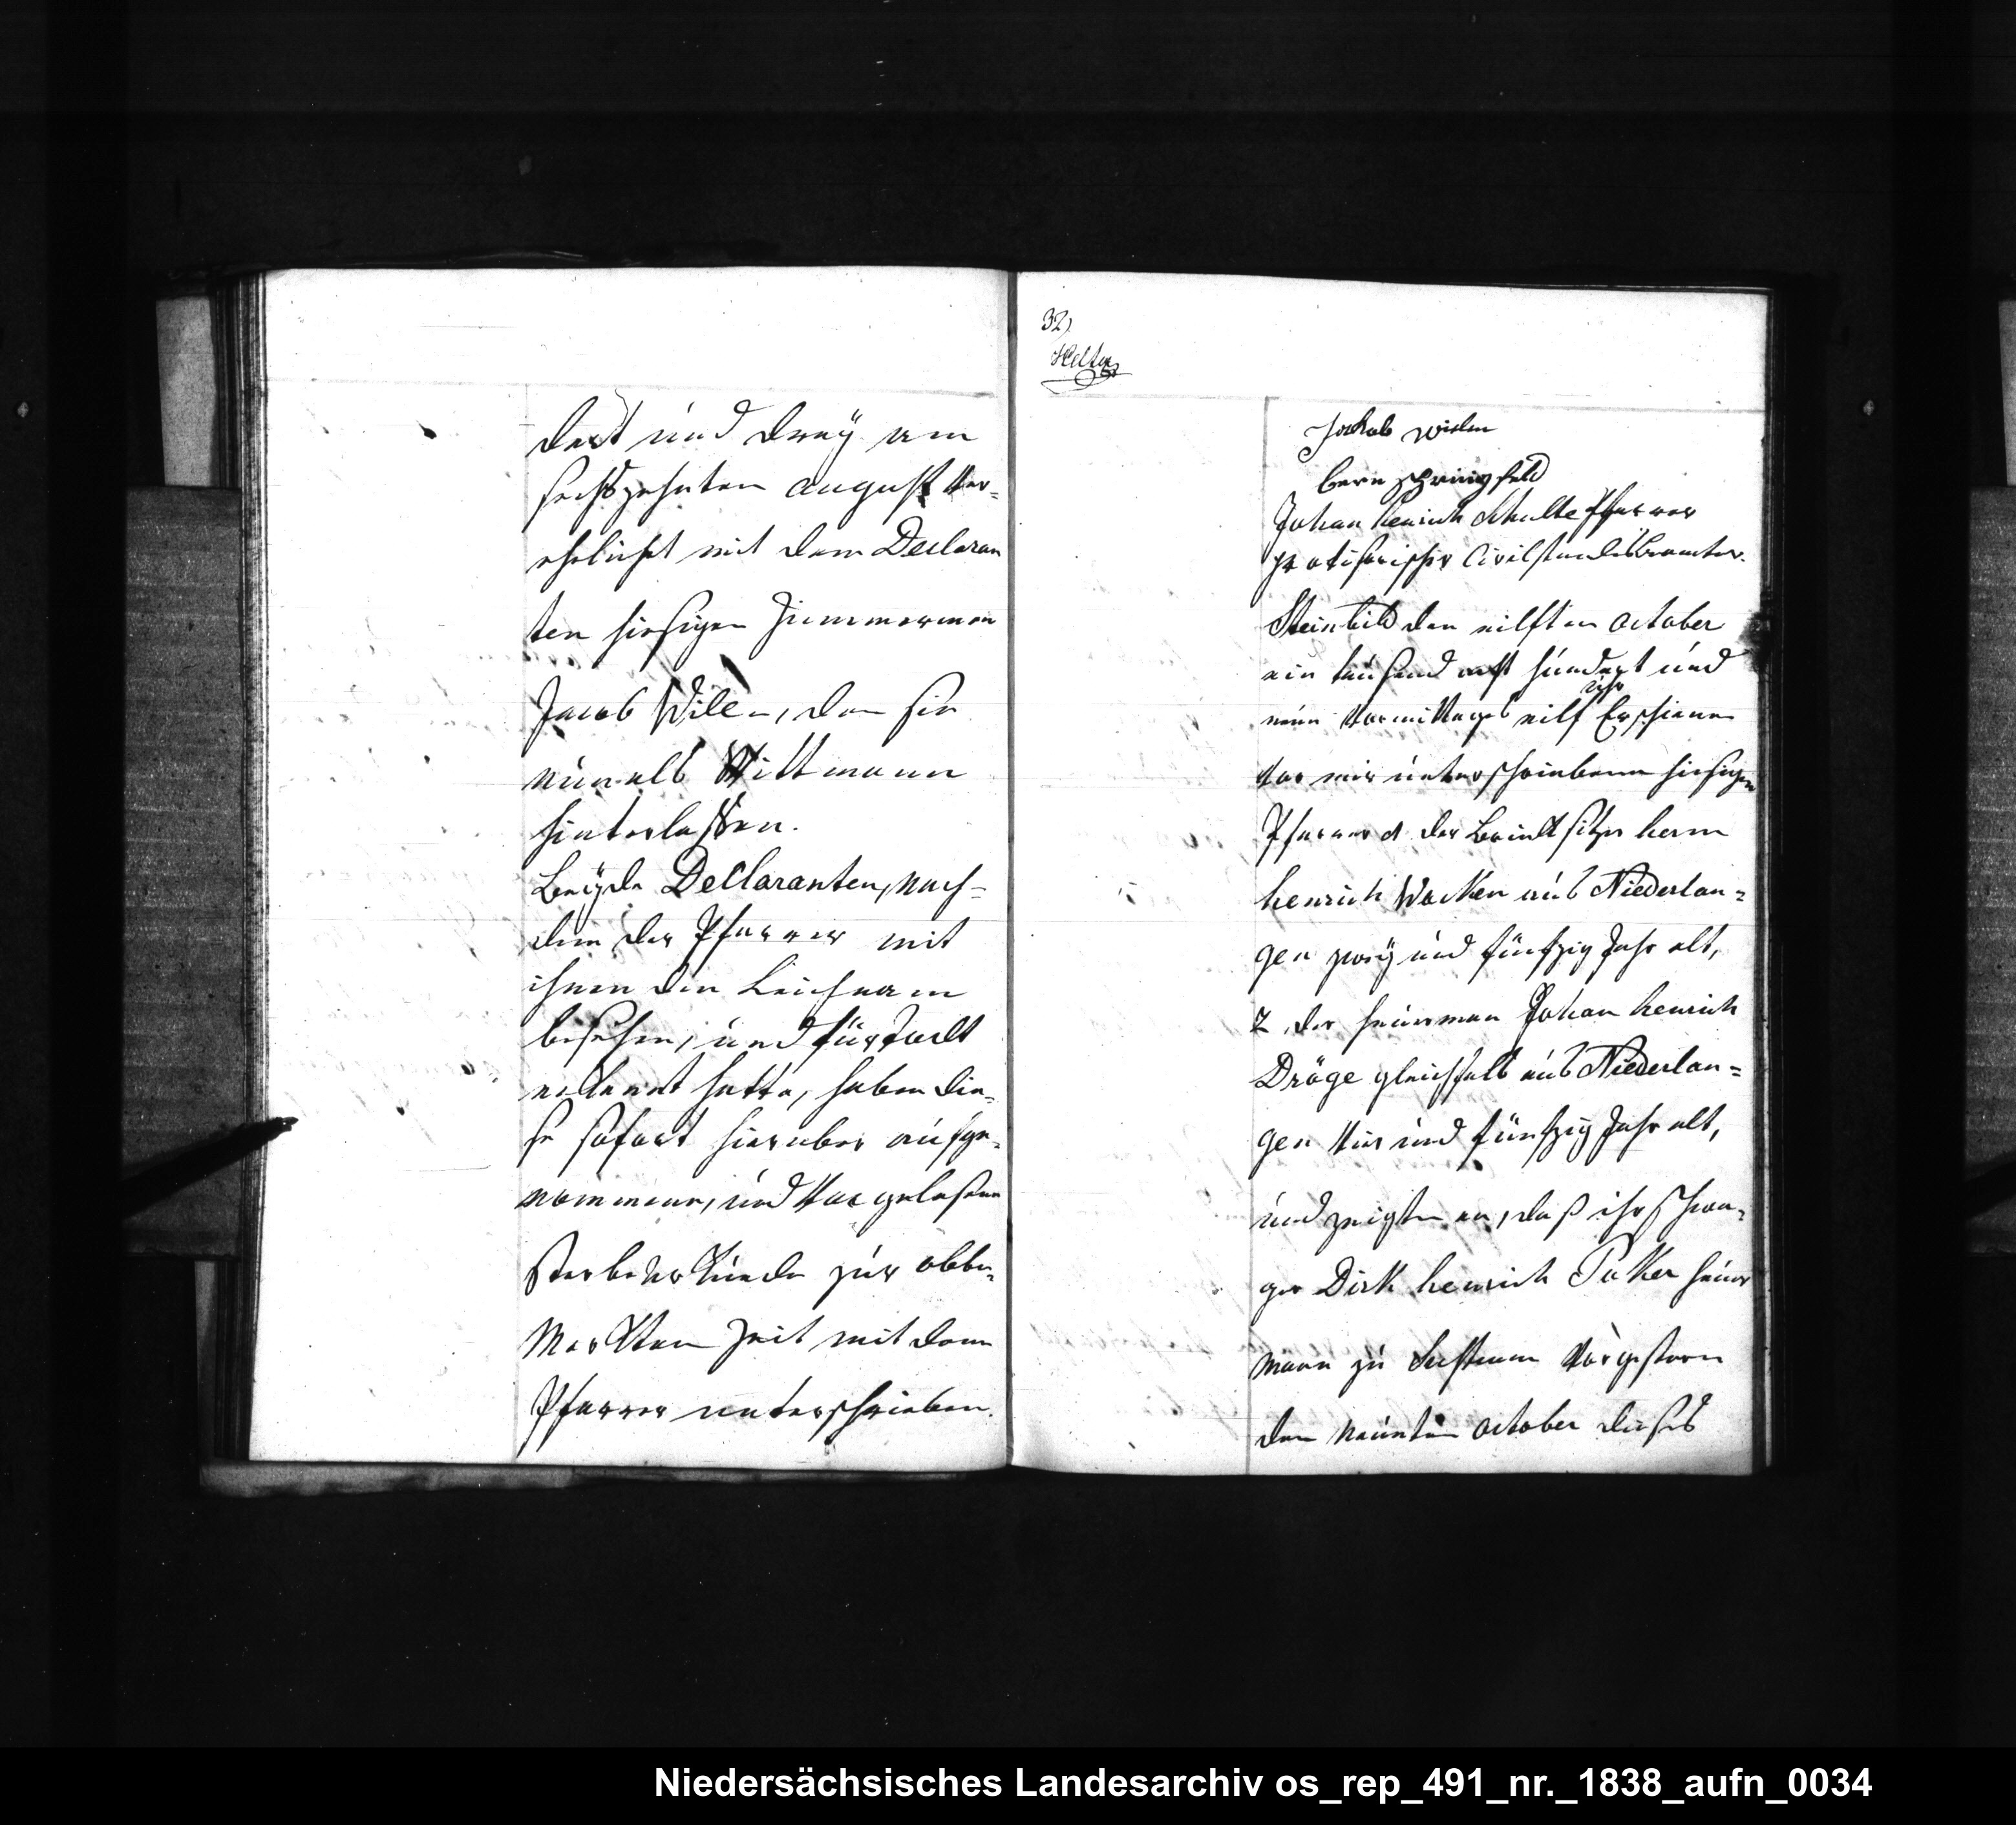 dert und dreÿ am
sechszehnten august ver=
ehelicht mit dem Declaran
ten hiesigen Zimmerman
Jacob Wilen, den sie
nun als Wittmann
hinterlassen.
Beÿde Declaranten, nach=
dem der Pfarrer mit
ihnen den Leichnam
besehen, und für todt
erkannt hatte, haben die=
se sofort hierüber aufge=
nommene, und vorgelesene
Sterbeurkunde zur obbe=
merkten Zeit mit dem
Pfarrer unterschrieben.
32)
Jakob wilen
bern springfeld
Johan henrich Schulte Pfarrer
provisorischer Civilstandesbeamter.
Steinbild den eilften October
ein tausend acht hundert und
neun vormittags eilf uhr Erschienen
vor mir unterschriebenen hiesigen
Pfarrer 1 der Brinksitzer herm
henrich Wocken aus Niederlan=
gen zweÿ und fünfzig Jahr alt,
2 der heuerman Johan henrich
Dröge gleichfals aus Niederlan=
gen vier und fünfzig Jahr alt,
und zeigten an, daß ihr Schwa=
ger Dirk henrich heuer
mann zu Sustrum vorgestern
den neunten October dieses